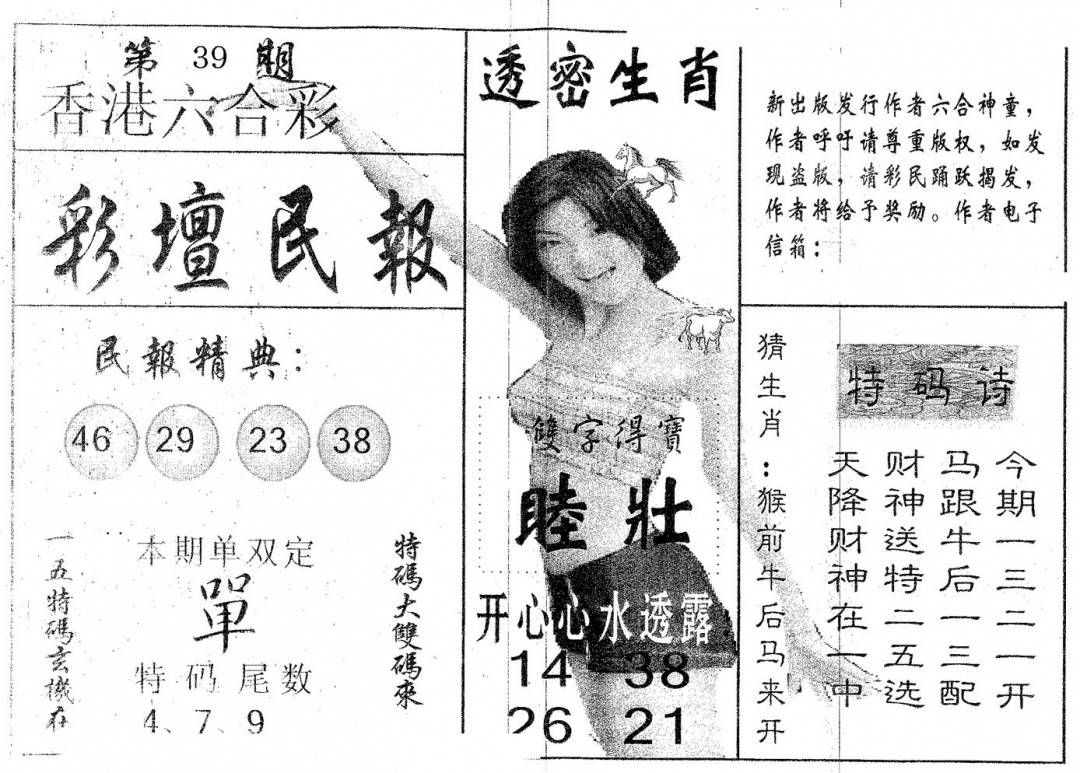 第 39 期
香港六合彩
彩壇民報
民報精典：
46 29 23 38
一五特碼玄機在
本期单双定
單
特码尾数
4、7、9
特碼大雙碼來
透密生肖
雙字得寶
睦壯
开心心水透露
14 38
26 21
新出版发行作者六合神童，
作者呼吁请尊重版权，如发
现盗版，请彩民踊跃揭发，
作者将给予奖励。作者电子
信箱：
猜生肖：猴前牛后马来开
特码诗
今期一三二一开
马跟牛后一三配
财神送特二五选
天降财神在一中